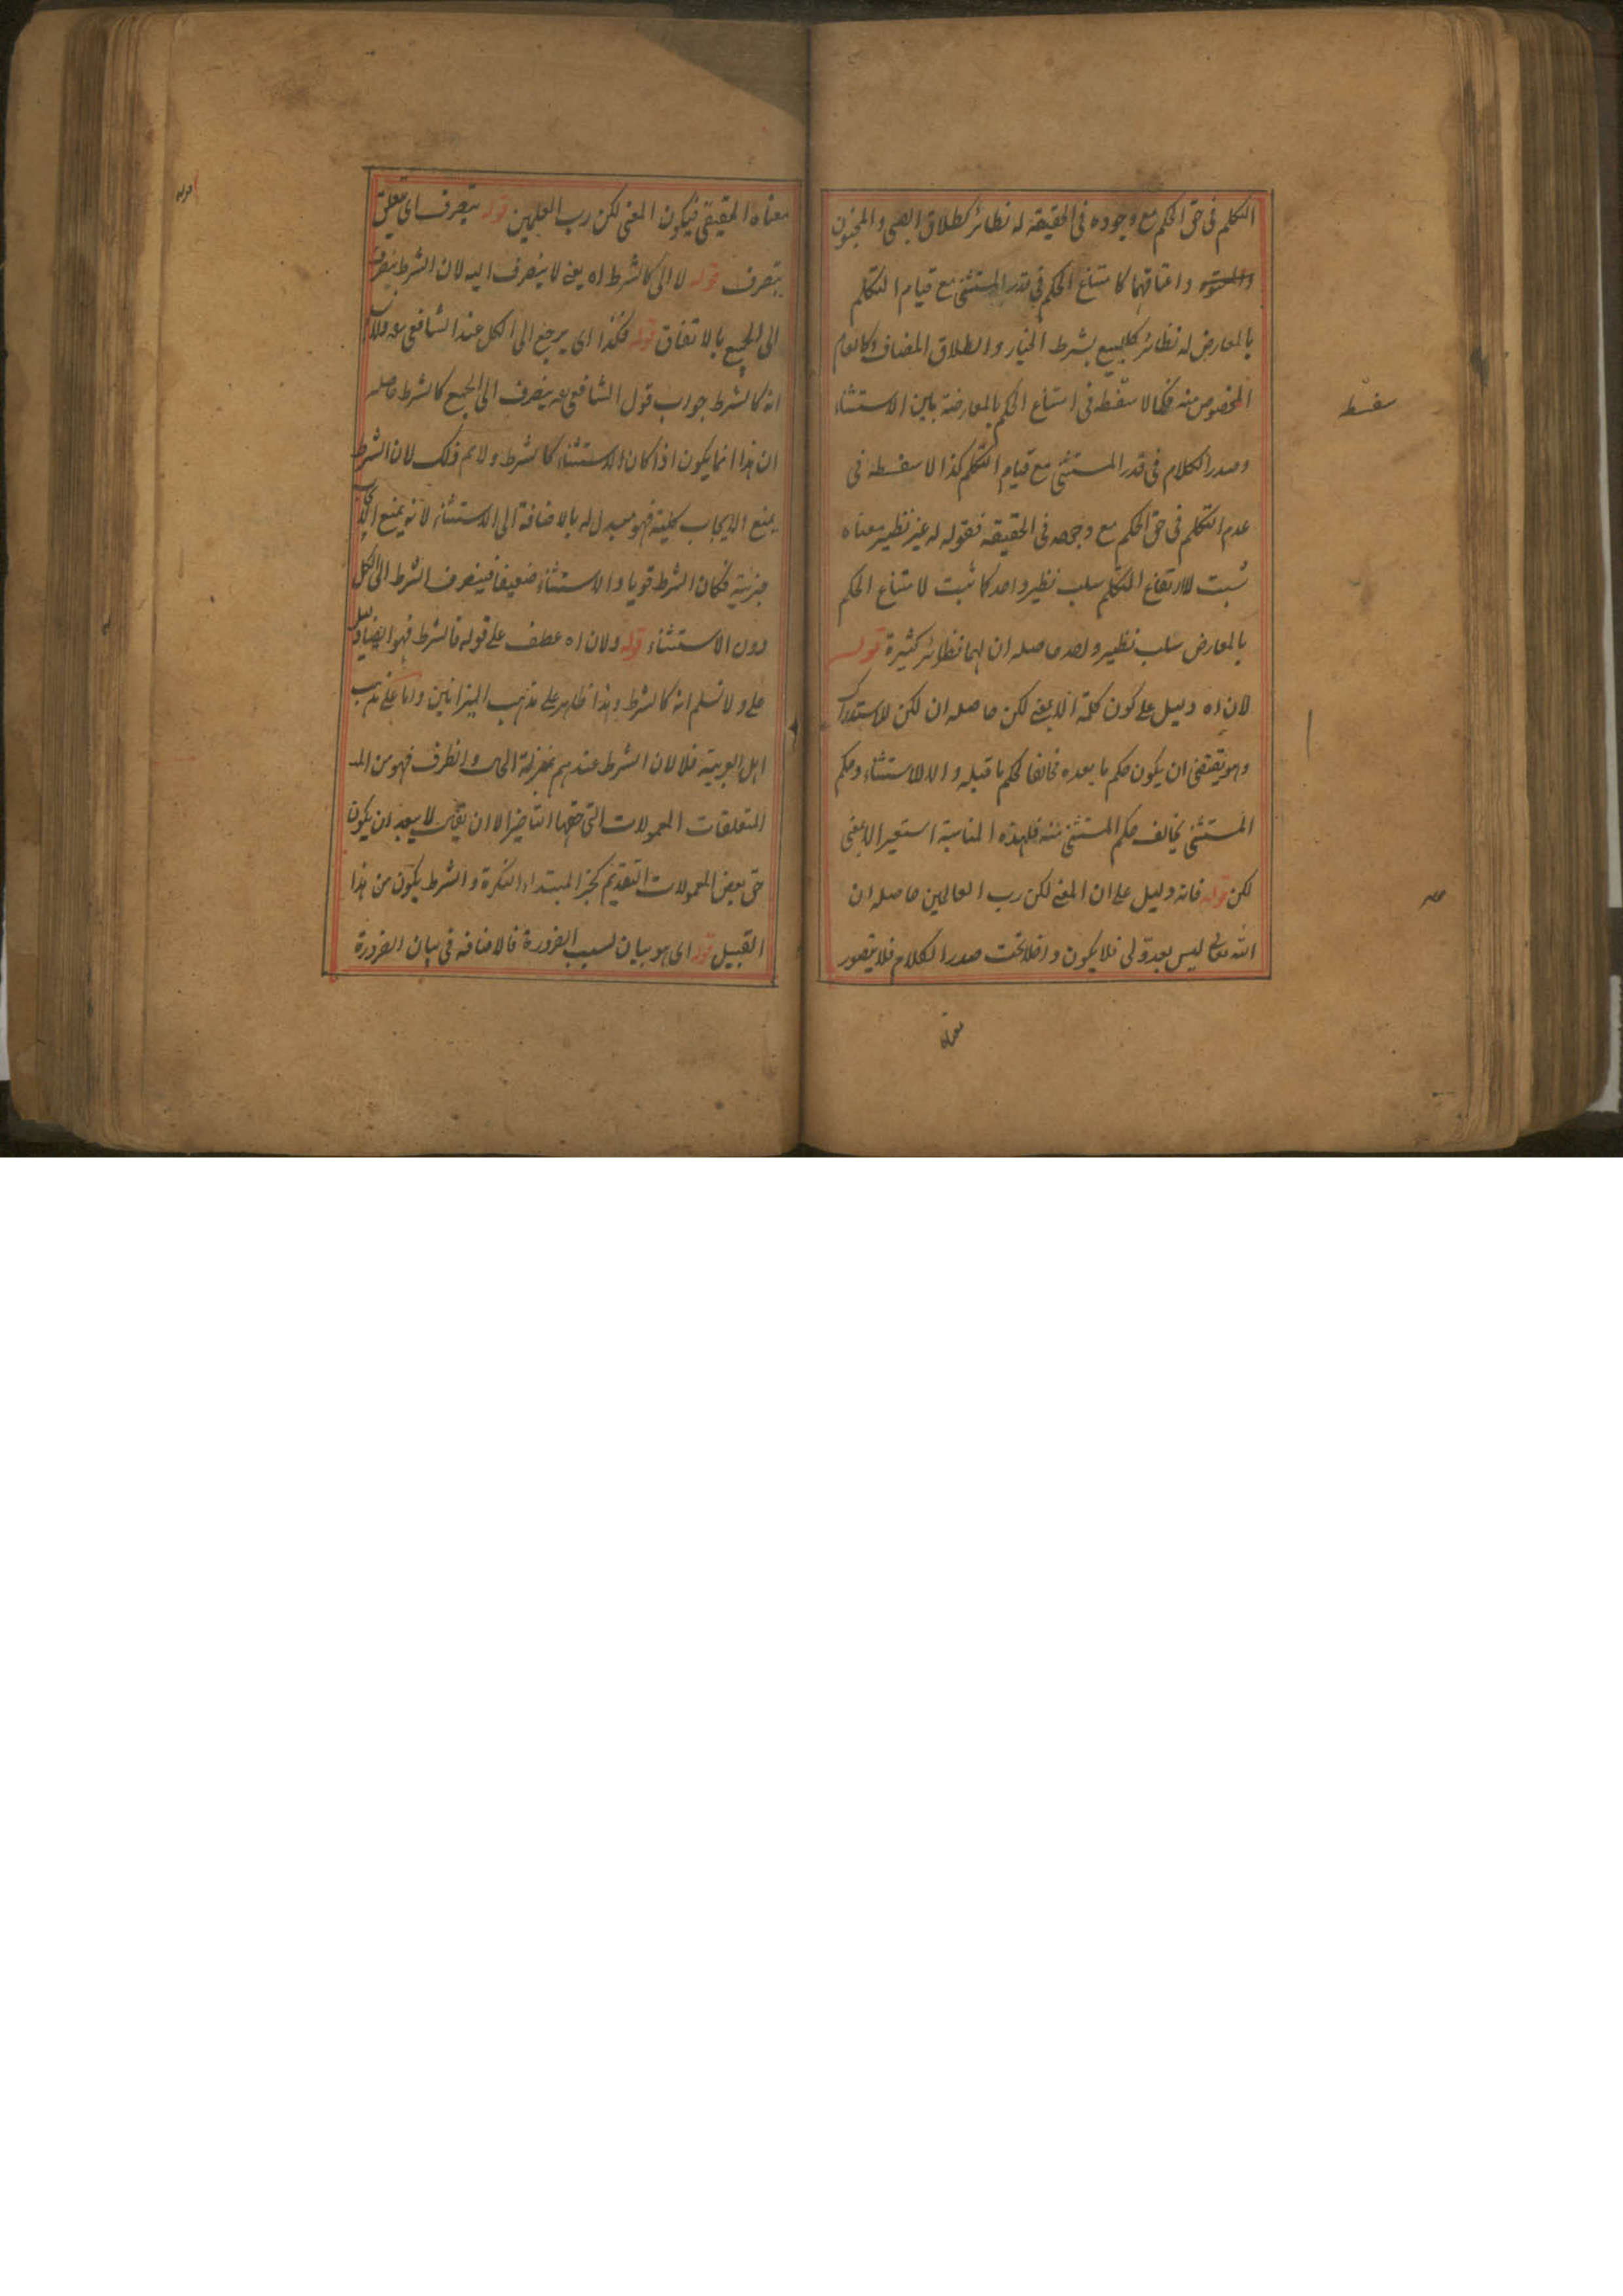 التكلم فى حق الحكم مع وجوده فى الحقيقة له نظائر كطلاق الصبى والمجنون
واعتاقهما كامتناع الحكم فى قدر المستثنى مع قيام التكلم
بالمعارض له نظائر كالبيع بشرط الخيار والطلاق المضاف وكالعام
المخصوص منه فكما لا سفسطه فى امتناع الحكم بالمعارضة بابين الاستثناء
وصدر الكلام فى قدر المستثنى مع قيام التكلم كذا لا سفسطه فى
عدم التكلم فى حق الحكم مع وجوده فى الحقيقة فقوله له غير نظير معناه
ثبت لارتفاع التكلم سلب نظير واحد كما ثبت لامتناع الحكم
بالمعارض سلب نظير واحد حاصله ان لهما نظائر كثيرة قوله
لان اه دليل على كون كلمة الا بمعنى لكن حاصله ان لكن للاستدراك
وهو يقتضى ان يكون حكم ما بعده مخالفا لحكم ما قبله والا للاستثناء وحكم
المستثنى يخالف حكم المستثنى منه فلهذه المناسبة استعير الا بمعنى
لكن قوله فانه دليل على ان المعنى لكن رب العالمين حاصله ان
الله تعالى ليس بعدو لى فلا يكون داخلا تحت صدر الكلام فلا يتصور
معناه
سفسطه
معناه الحقيقى فيكون المعنى لكن رب العلمين قوله يتصرف اى تعلق
يتصرف قوله لا الى كالشرط اه يعنى لا ينصرف اليه لان الشرط ينصرف
الى الجميع بالاتفاق قوله فكذا اى يرجع الى الكل عند الشافعى رح قوله لا
انه كالشرط جواب قول الشافعى رح ينصرف الى الجميع كالشرط حاصله
ان هذا انما يكون اذا كان الاستثناء كالشرط ولا نم ذلك لان الشرط
يمنع الايجاب كلية فهو مبدل له بالاضافة الى الاستثناء لانه يمنع
جزئية فكان الشرط قويا والاستثناء ضعيفا فينصرف الشرط الى الكل
دون الاستثناء قوله ولان اه عطف على قوله فالشرط فهو ايضا دليل
على ولا نسلم انه كالشرط وهذا ظاهر على مذهب الميزانين واما على مذهب
اهل العربية فلا لان الشرط عندهم بمنزلة الحال والظرف فهو من
المتعلقات المعمولات التى حقها التاخير الا ان يقال لا يبعد ان يكون
حق بعض المعمولات التقديم كخبر المبتداء النكرة والشرط يكون من هذا
القبيل قوله اى هو بيان لسبب الضرورة فالاضافة فى بيان الضرورة
قوله